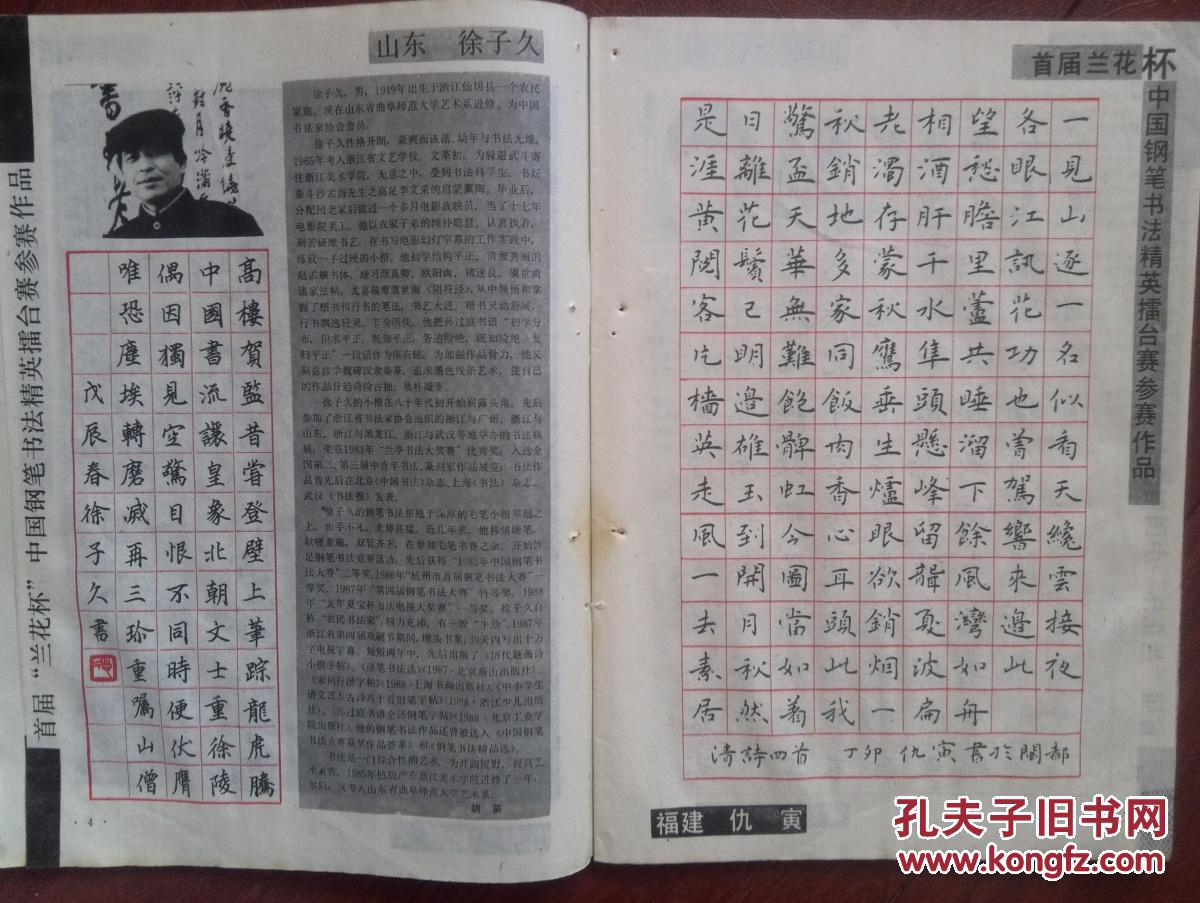 首届“兰花杯”中国钢笔书法精英擂台赛参赛作品
山东 徐子久
高樓賀監昔嘗登壁上筆踪龍虎騰
中國書流讓皇象北朝文士重徐陵
偶因獨見空驚目恨不同時便伏膺
唯恐塵埃轉磨滅再三珍重囑山僧
戊辰春徐子久書
徐子久，男，1949年出生于浙江仙居县一个农民
家庭。现在山东省曲阜师范大学艺术系进修。为中国
书法家协会会员。
徐子久性格开朗，豪爽而诙谐，幼年与书法无缘，
1965年考入浙江省文艺学校，文革初，为躲避武斗寄
住浙江美术学院，无意之中，受到书法科学生、书坛
泰斗沙孟海先生之高足李文采的启蒙薰陶。毕业后，
分配回老家后做过一个多月电影放映员，当了十七年
电影院美工。他以农家子弟的纯朴聪慧，认真执着，
刻苦研摩书艺，在书写电影幻灯字幕的工作实践中，
练就一手过硬的小楷。他初学结构平正、清雅秀丽的
赵孟頫书体，继习颜真卿、欧阳询、褚遂良、虞世南
诸家法帖。尤喜揣摩虞世南《阴符经》，从中领悟和掌
握了楷书和行书的笔法，书艺大进。楷书灵动舒展，
行书飘逸轻灵，节奏明快。他把孙过庭书谱“初学分
布，但求平正，既知平正，务追险绝，既知险绝，复
归平正”一段话作为座右铭，为加强作品骨力，他又
刻意涉学魏碑汉隶秦篆，追求墨色线条艺术，使自己
的作品日趋奇险古拙、质朴凝重。
徐子久的小楷在八十年代初开始崭露头角。先后
参加了浙江省书法家协会组织的浙江与广州，浙江与
山东，浙江与黑龙江，浙江与武汉等地举办的书法联
展；荣获1983年“兰亭书法大奖赛”优秀奖；入选全
国第二、第三届中青年书法、篆刻家作品展览；书法作
品曾先后在北京《中国书法》杂志、上海《书法》杂志、
武汉《书法报》发表。
徐子久的钢笔书法根植于深厚的毛笔小楷基础之
上，出手不凡，来势甚猛，近几年来，他移情硬笔，
软硬兼施，双管齐下，在参加毛笔书赛之余，开始涉
足钢笔书法竞赛活动，先后获得“1985年中国钢笔书
法大赛”二等奖，1986年“杭州市首届钢笔书法大赛”一
等奖，1987年“第四届钢笔书法大赛”特等奖，1988
年“龙年夏宝杯书法电视大奖赛”一等奖。徐子久自
称“农民书法家”，精力充沛，有一股“牛劲”，1987年
浙江省第四届戏剧节期间，埋头书案，39天内写出十万
字电视字幕。短短两年中，先后出版了《历代题画诗
小楷字帖》、《硬笔书法选》（1987·北京燕山出版社）、
《宋词行楷字帖》（1988·上海书画出版社）、《中小学生
语文课本古诗八十首钢笔字帖》（1988·浙江少儿出版
社）、《孙过庭书谱全译钢笔字帖》（1988·北京工业学
院出版社）。他的钢笔书法作品还曾被选入《中国钢笔
书法大赛获奖作品荟萃》和《钢笔书法精品选》。
书法是一门综合性的艺术，为开阔视野，提高艺
术素养，1985年他脱产在浙江美术学院进修了一年，
尔后，又考入山东省曲阜师范大学艺术系。
胡 笛
·4·
首届兰花杯
中国钢笔书法精英擂台赛参赛作品
是日驚秋老相望各一
涯離盃銷濁酒愁眼見
黃花天地存肝膽江山
閱鬢華多蒙千里訊逐
客已無家秋水蘆花一
片明難同鷹隼共功名
檣邊飽飯垂頭睡也似
英雄髀肉生懸溜曾看
走玉虹香爐峰下駕天
風到今心眼留餘響纔
一開圖耳欲聾風來雲
去月當頭銷夏灣邊接
素秋如此烟波如此夜
居然著我一扁舟
清詩四首 丁卯 仇寅書於閩都
福建 仇 寅
孔夫子旧书网
www.kongfz.com